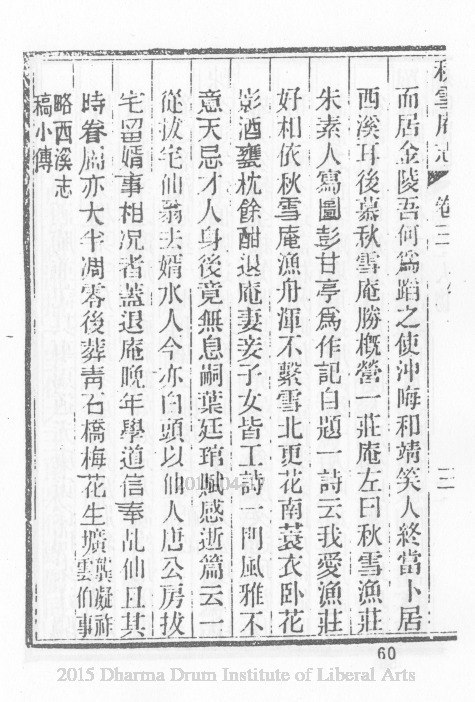 秋雪庵志 卷三 三
而居金陵吾何爲蹈之使沖晦和靖笑人終當卜居
西溪耳後慕秋雪庵勝概營一莊庵左曰秋雪漁莊
朱素人寫圖彭甘亭爲作記自題一詩云我愛漁莊
好相依秋雪庵漁舟渾不繫雪北更花南蓑衣臥花
影酒甕枕餘酣退庵妻妾子女皆工詩一門風雅不
意天忌才人身後竟無息嗣葉廷琯賦感逝篇云一
從拔宅仙翁去婿水人今亦白頭以仙人唐公房拔
宅留婿事相况者蓋退庵晚年學道信奉乩仙且其
時眷屬亦大半凋零後葬靑石橋梅花生壙龔凝祚
雲伯事
略西溪志
稿小傳
60
2015 Dharma Drum Institute of Liberal Arts